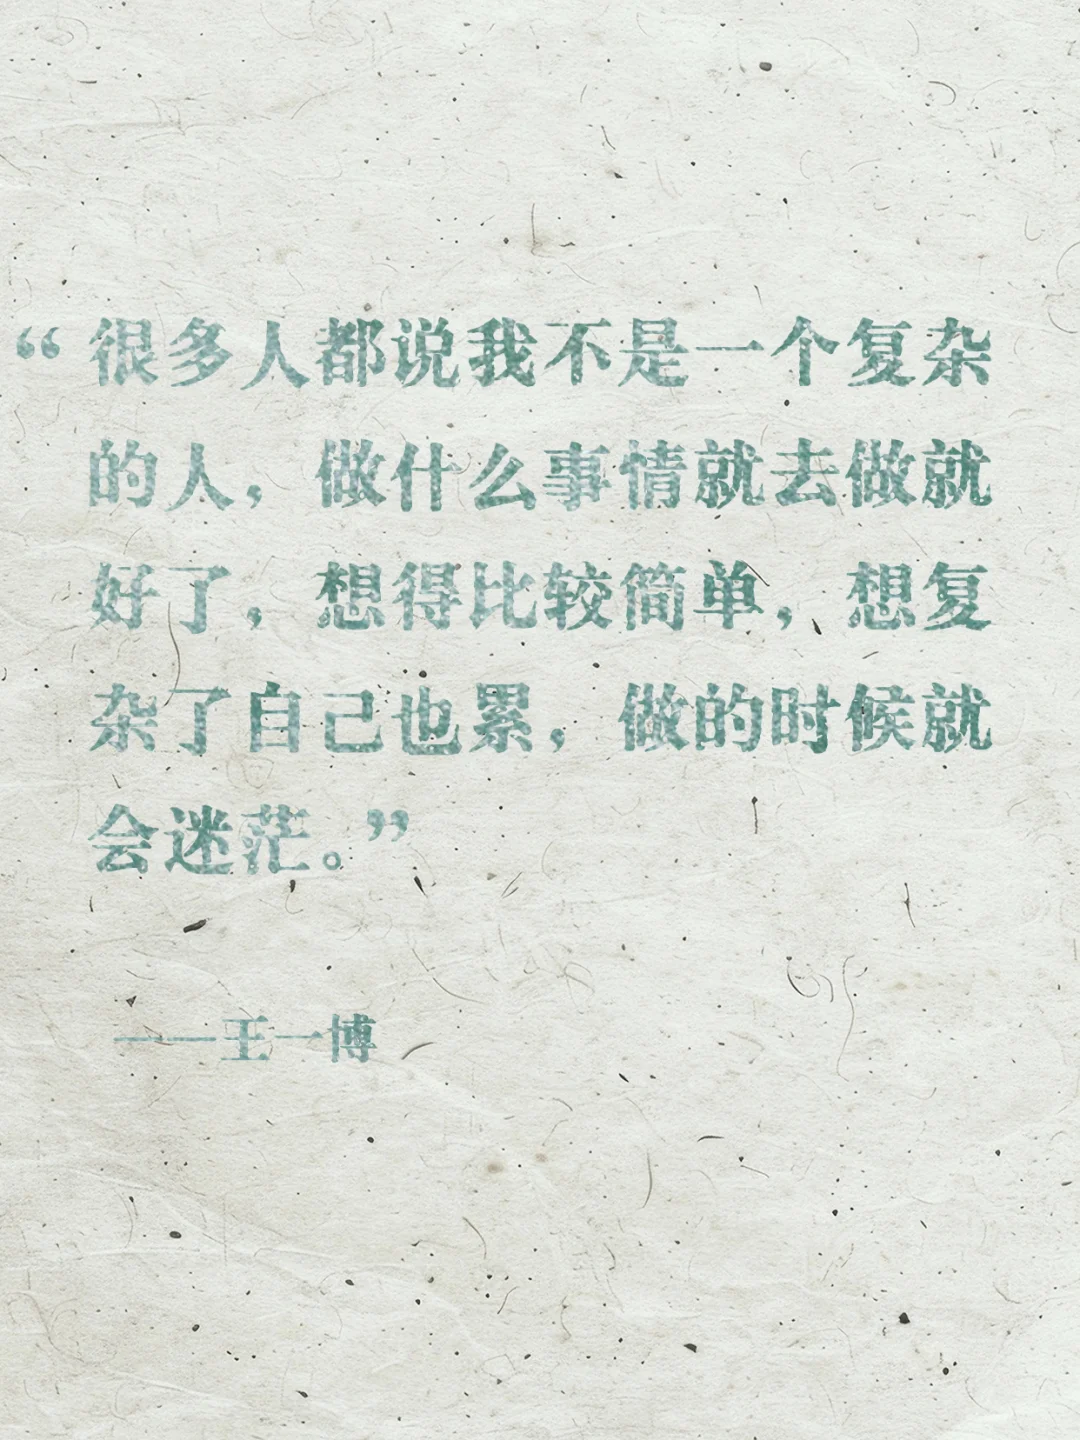 “很多人都说我不是一个复杂
的人，做什么事情就去做就
好了，想得比较简单，想复
杂了自己也累，做的时候就
会迷茫。”
——王一博